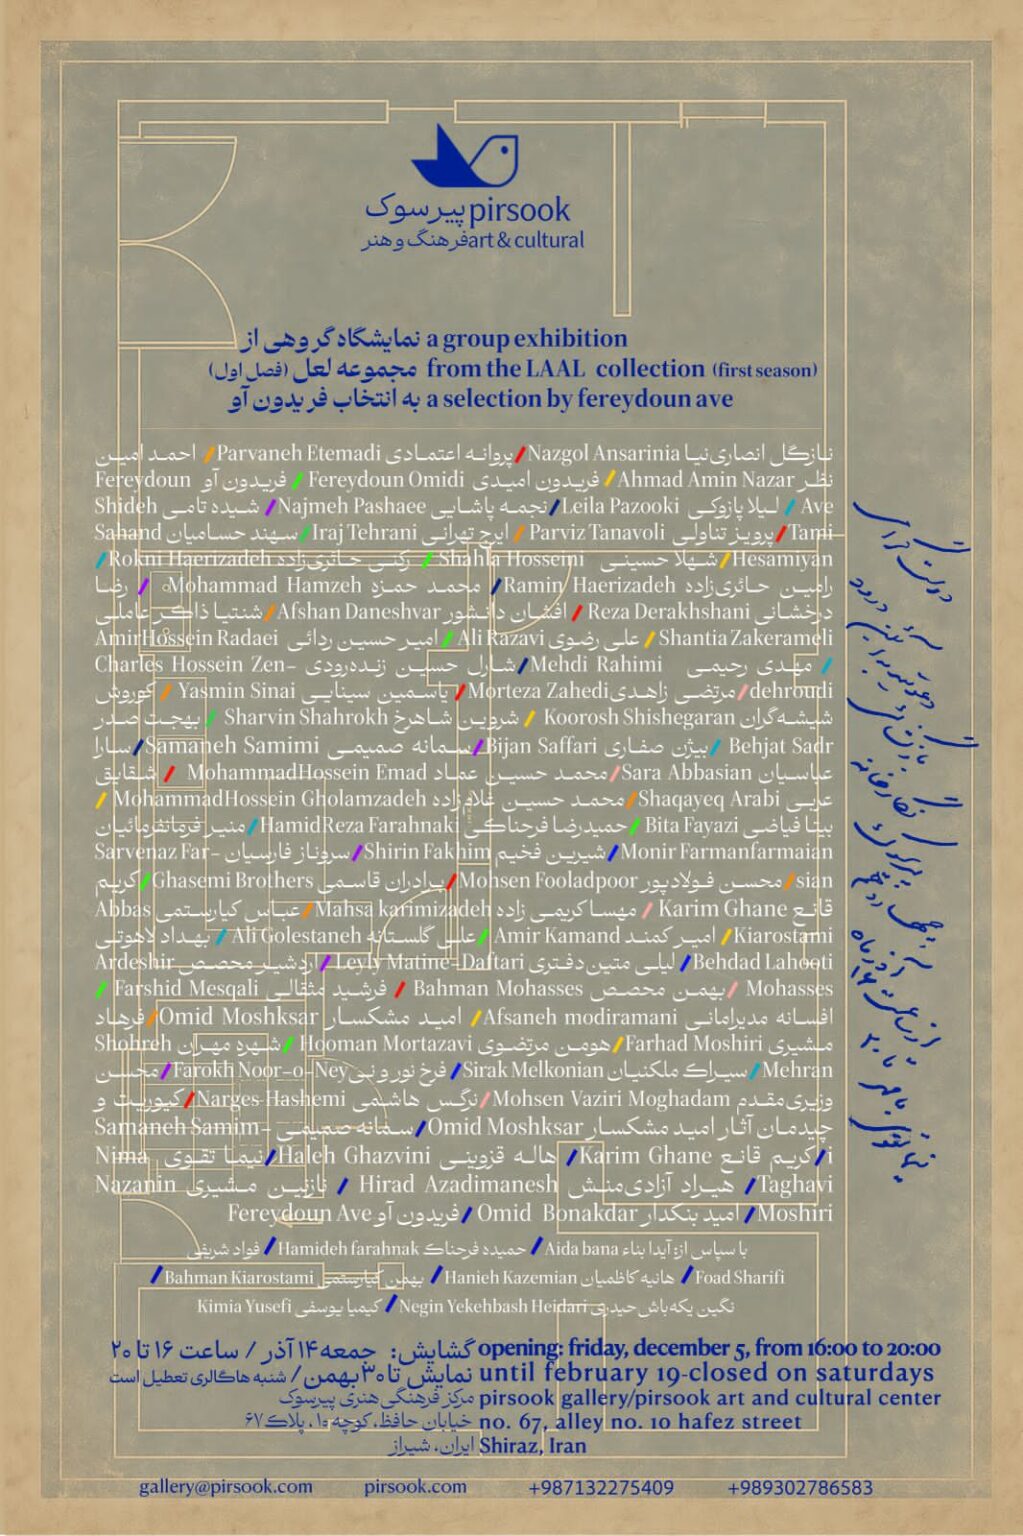 pirsook پیرسوک
art & cultural فرهنگ و هنر
a group exhibition نمایشگاه گروهی از
from the LAAL collection (first season) مجموعه لعل (فصل اول)
a selection by fereydoun ave به انتخاب فریدون آو
نازگل انصاری‌نیا Nazgol Ansarinia / پروانه اعتمادی Parvaneh Etemadi / احمد امین
نظر Ahmad Amin Nazar / فریدون امیدی Fereydoun Omidi / فریدون آو Fereydoun
Ave / لیلا پازوکی Leila Pazooki / نجمه پاشایی Najmeh Pashaee / شیده تامی Shideh
Tami / پرویز تناولی Parviz Tanavoli / ایرج تهرانی Iraj Tehrani / سهند حسامیان Sahand
Hesamiyan / شهلا حسینی Shahla Hosseini / رکنی حائری‌زاده Rokni Haerizadeh /
رامین حائری‌زاده Ramin Haerizadeh / محمد حمزه Mohammad Hamzeh / رضا
درخشانی Reza Derakhshani / افشان دانشور Afshan Daneshvar / شنتیا ذاکر عاملی
Shantia Zakerameli / علی رضوی Ali Razavi / امیر حسین ردائی AmirHossein Radaei
/ مهدی رحیمی Mehdi Rahimi / شارل حسین زنده‌رودی Charles Hossein Zen-
dehroudi / مرتضی زاهدی Morteza Zahedi / یاسمین سینایی Yasmin Sinai / کوروش
شیشه‌گران Koorosh Shishegaran / شروین شاهرخ Sharvin Shahrokh / بهجت صدر
Behjat Sadr / بیژن صفاری Bijan Saffari / سمانه صمیمی Samaneh Samimi / سارا
عباسیان Sara Abbasian / محمد حسین عماد MohammadHossein Emad / شقایق
عربی Shaqayeq Arabi / محمد حسین غلامزاده MohammadHossein Gholamzadeh /
بیتا فیاضی Bita Fayazi / حمیدرضا فرحناکی HamidReza Farahnaki / منیر فرمانفرمائیان
Monir Farmanfarmaian / شیرین فخیم Shirin Fakhim / سروناز فارسیان Sarvenaz Far-
sian / محسن فولادپور Mohsen Fooladpoor / برادران قاسمی Ghasemi Brothers / کریم
قانع Karim Ghane / مهسا کریمی زاده Mahsa karimizadeh / عباس کیارستمی Abbas
Kiarostami / امیر کمند Amir Kamand / علی گلستانه Ali Golestaneh / بهداد لاهوتی
Behdad Lahooti / لیلی متین دفتری Leyly Matine-Daftari / اردشیر محصص Ardeshir
Mohasses / بهمن محصص Bahman Mohasses / فرشید مثقالی Farshid Mesqali /
افسانه مدیرامانی Afsaneh modiramani / امید مشکسار Omid Moshksar / فرهاد
مشیری Farhad Moshiri / هومن مرتضوی Hooman Mortazavi / شهره مهران Shohreh
Mehran / سیراک ملکنیان Sirak Melkonian / فرخ نور و نی Farokh Noor-o-Ney / محسن
وزیری‌مقدم Mohsen Vaziri Moghadam / نرگس هاشمی Narges Hashemi / کیوریت و
چیدمان آثار امید مشکسار Omid Moshksar / سمانه صمیمی Samaneh Samim-
i / کریم قانع Karim Ghane / هاله قزوینی Haleh Ghazvini / نیما تقوی Nima
Taghavi / هیراد آزادی‌منش Hirad Azadimanesh / نازنین مشیری Nazanin
Moshiri / امید بنکدار Omid Bonakdar / فریدون آو Fereydoun Ave
با سپاس از: آیدا بناء Aida bana / حمیده فرحناک Hamideh farahnak / فواد شریفی
Foad Sharifi / هانیه کاظمیان Hanieh Kazemian / بهمن کیارستمی Bahman Kiarostami /
نگین یکه‌باش حیدری Negin Yekehbash Heidari / کیمیا یوسفی Kimia Yusefi
opening: friday, december 5, from 16:00 to 20:00 گشایش: جمعه ۱۴ آذر / ساعت ۱۶ تا ۲۰
until february 19-closed on saturdays نمایش تا ۳۰ بهمن / شنبه ها گالری تعطیل است
pirsook gallery/pirsook art and cultural center مرکز فرهنگی هنری پیرسوک
no. 67, alley no. 10 hafez street خیابان حافظ، کوچه ۱۰، پلاک ۶۷
Shiraz, Iran ایران، شیراز
gallery@pirsook.com pirsook.com +987132275409 +989302786583